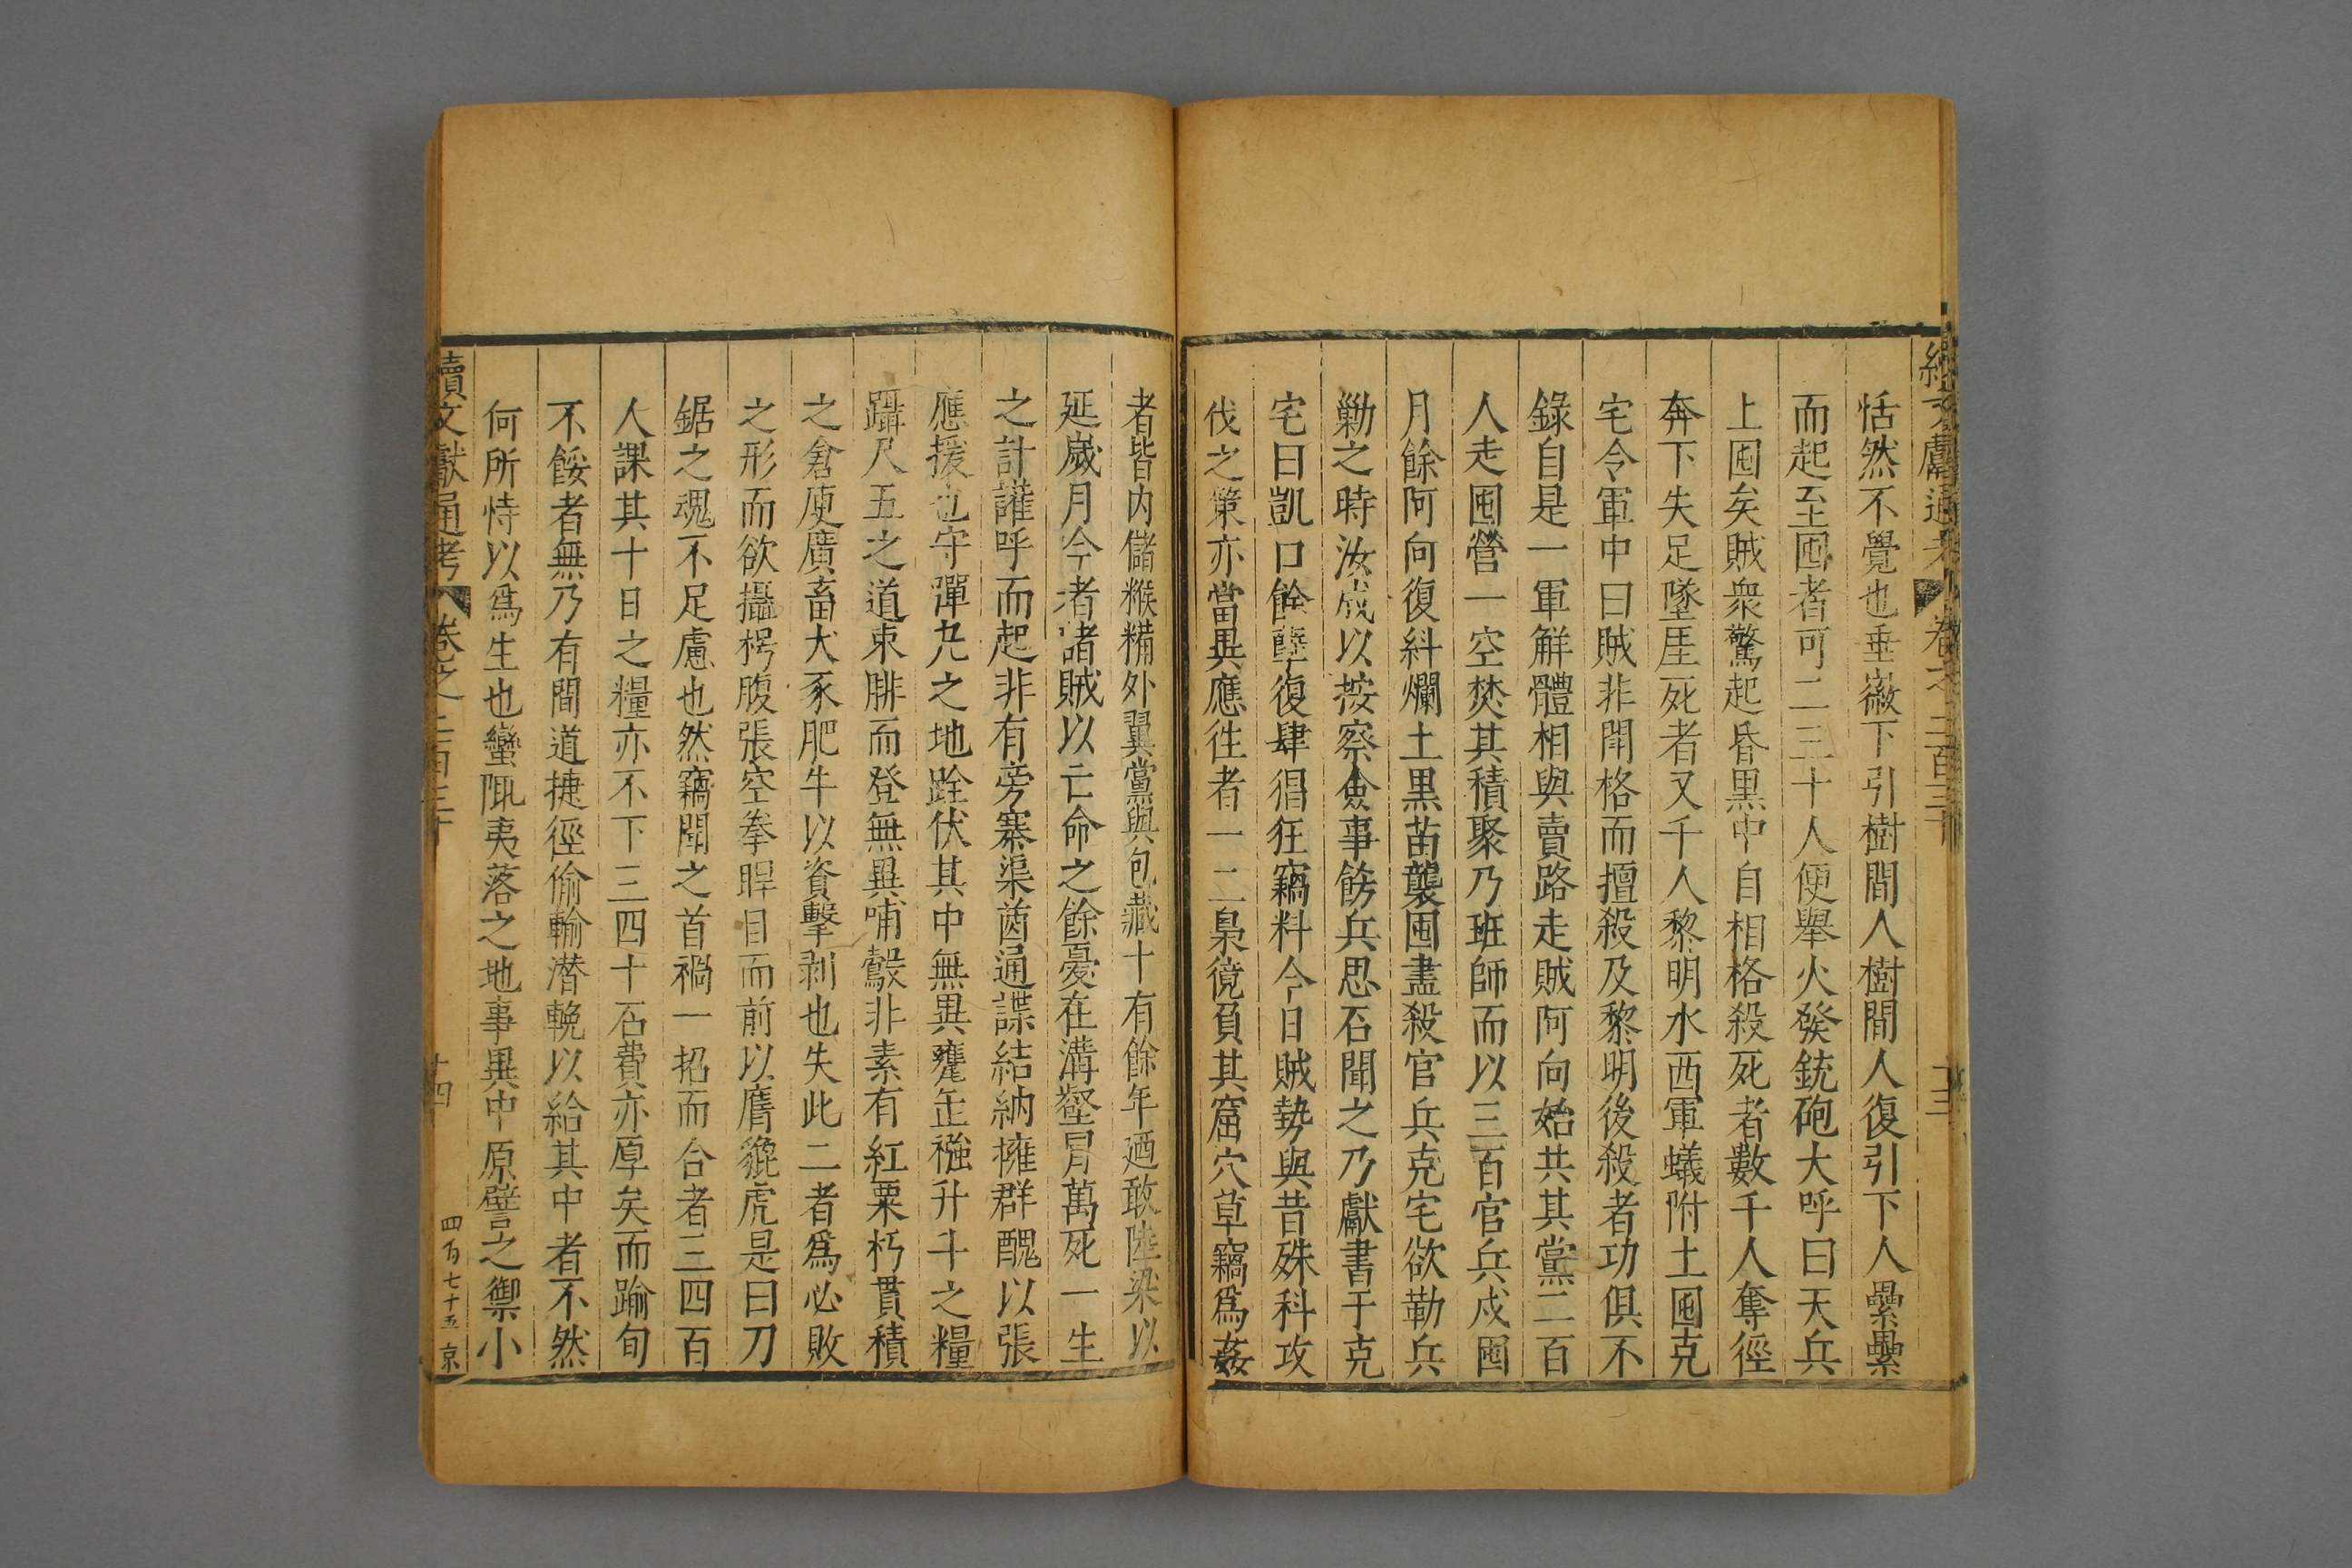 續文獻通考 卷之二百三十 十三
恬然不覺也垂徽下引樹間人樹間人復引下人纍纍
而起至囤者可二三十人便舉火發銃砲大呼曰天兵
上囤矣賊衆驚起昏黒中自相格殺死者數千人奪徑
奔下失足墜厓死者又千人黎明水西軍蟻附上囤克
宅令軍中曰賊非鬬格而擅殺及黎明後殺者功俱不
錄自是一軍解體相與賣路走賊阿向始共其黨二百
人走囤營一空焚其積聚乃班師而以三百官兵戍囤
月餘阿向復糾爛土黒苗襲囤盡殺官兵克宅欲勒兵
勦之時汝成以按察僉事飭兵思石聞之乃獻書于克
宅曰凱口餘孽復肆猖狂竊料今日賊勢與昔殊科攻
伐之策亦當異應往者一二梟獍負其窟穴草竊爲姦
者皆内儲糇糒外翼黨與包藏十有餘年廼敢陸梁以
延嵗月今者諸賊以亡命之餘憂在溝壑冒萬死一生
之計讙呼而起非有旁寨渠酋通諜結納擁群醜以張
應援也守彈丸之地跧伏其中無異甕缶襁升斗之糧
躡尺五之道束腓而登無異哺鷇非素有紅粟朽貫積
之倉庾廣畜犬豕肥牛以資擊剥也失此二者爲必敗
之形而欲攝枵腹張空拳睅目而前以膺貔虎是曰刀
鋸之魂不足慮也然竊聞之首禍一招而合者三四百
人課其十日之糧亦不下三四十石費亦厚矣而踰旬
不餒者無乃有間道捷徑偷輸潜輓以給其中者不然
何所恃以爲生也蠻陬夷落之地事異中原譬之禦小
續文獻通考 卷之二百三十 十四 四百七十五 京